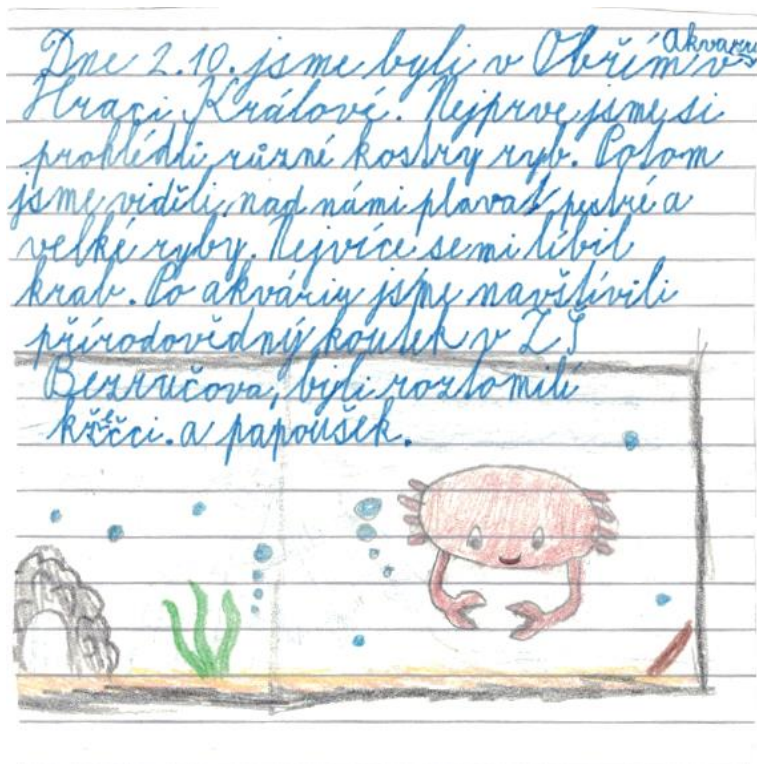 Dne 2.10. jsme byli v Obřím Akvariu v
Hraci Králové. Nejprve jsme si
prohlédli různé kostry ryb. Potom
jsme viděli, nad námi plavat pestré a
velké ryby. Nejvíce se mi líbil
krab. Po akváriu jsme navštívili
přírodovědný koutek v ZŠ
Bezručova, byli roztomilí
křečci. a papoušek.